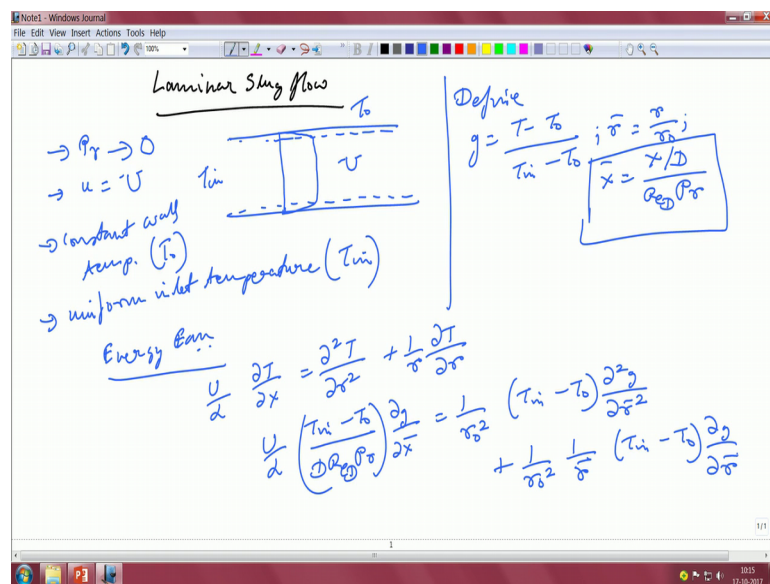 Note1 - Windows Journal
File Edit View Insert Actions Tools Help
100%
Laminar Slug flow
→ Pr → 0
→ u = U
→ constant wall temp. (T₀)
→ uniform inlet temperature (Tin)
T₀
Tin
U
Define
g = (T - T₀)/(Tin - T₀) ; r̄ = r/r₀ ;
x̄ = (x/D)/(Re_D Pr)
Energy Eqn
U/α ∂T/∂x = ∂²T/∂r² + 1/r ∂T/∂r
U/α ((Tin - T₀)/(D Re_D Pr)) ∂g/∂x̄ = 1/r₀² (Tin - T₀) ∂²g/∂r̄²
+ 1/r₀² 1/r̄ (Tin - T₀) ∂g/∂r̄
1/1
1
10:15
17-10-2017